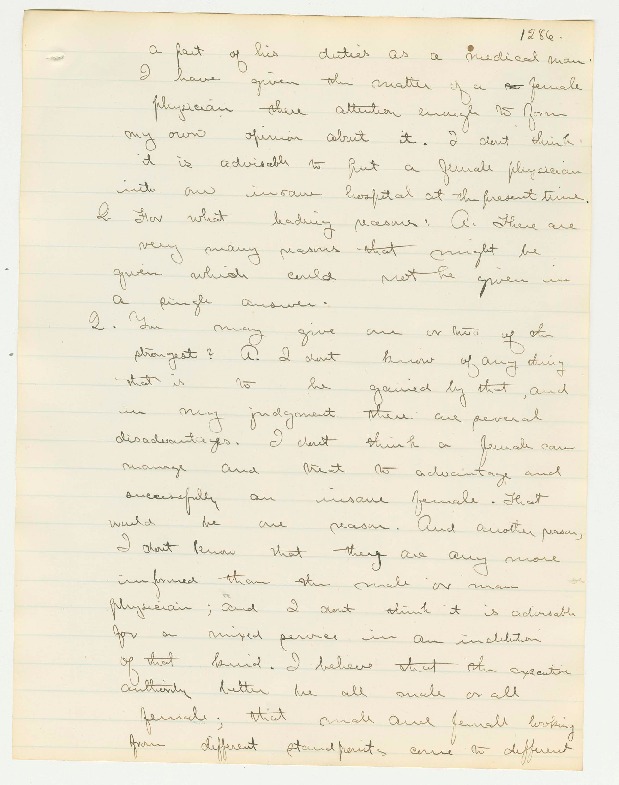 1286.
a part of his duties as a medical man.
I have given the matter of a female
physician there attention enough to form
my own opinion about it. I dont think
it is advisable to put a female physician
into our insane hospital at the present time.
Q. For what leading reasons? A. There are
very many reasons that might be
given which could not be given in
a single answer.
Q. You may give one or two of the
strongest? A. I dont know of any thing
that is to be gained by that, and
in my judgment there are several
disadvantages. I dont think a female can
manage and treat to advantage and
successfully an insane female. That
would be one reason. And another reason,
I dont know that they are any more
informed than the male or man
physician; and I dont think it is advisable
for a mixed service in an institution
of that kind. I believe that the executive
authority better be all male or all
female; that male and female looking
from different standpoints come to different